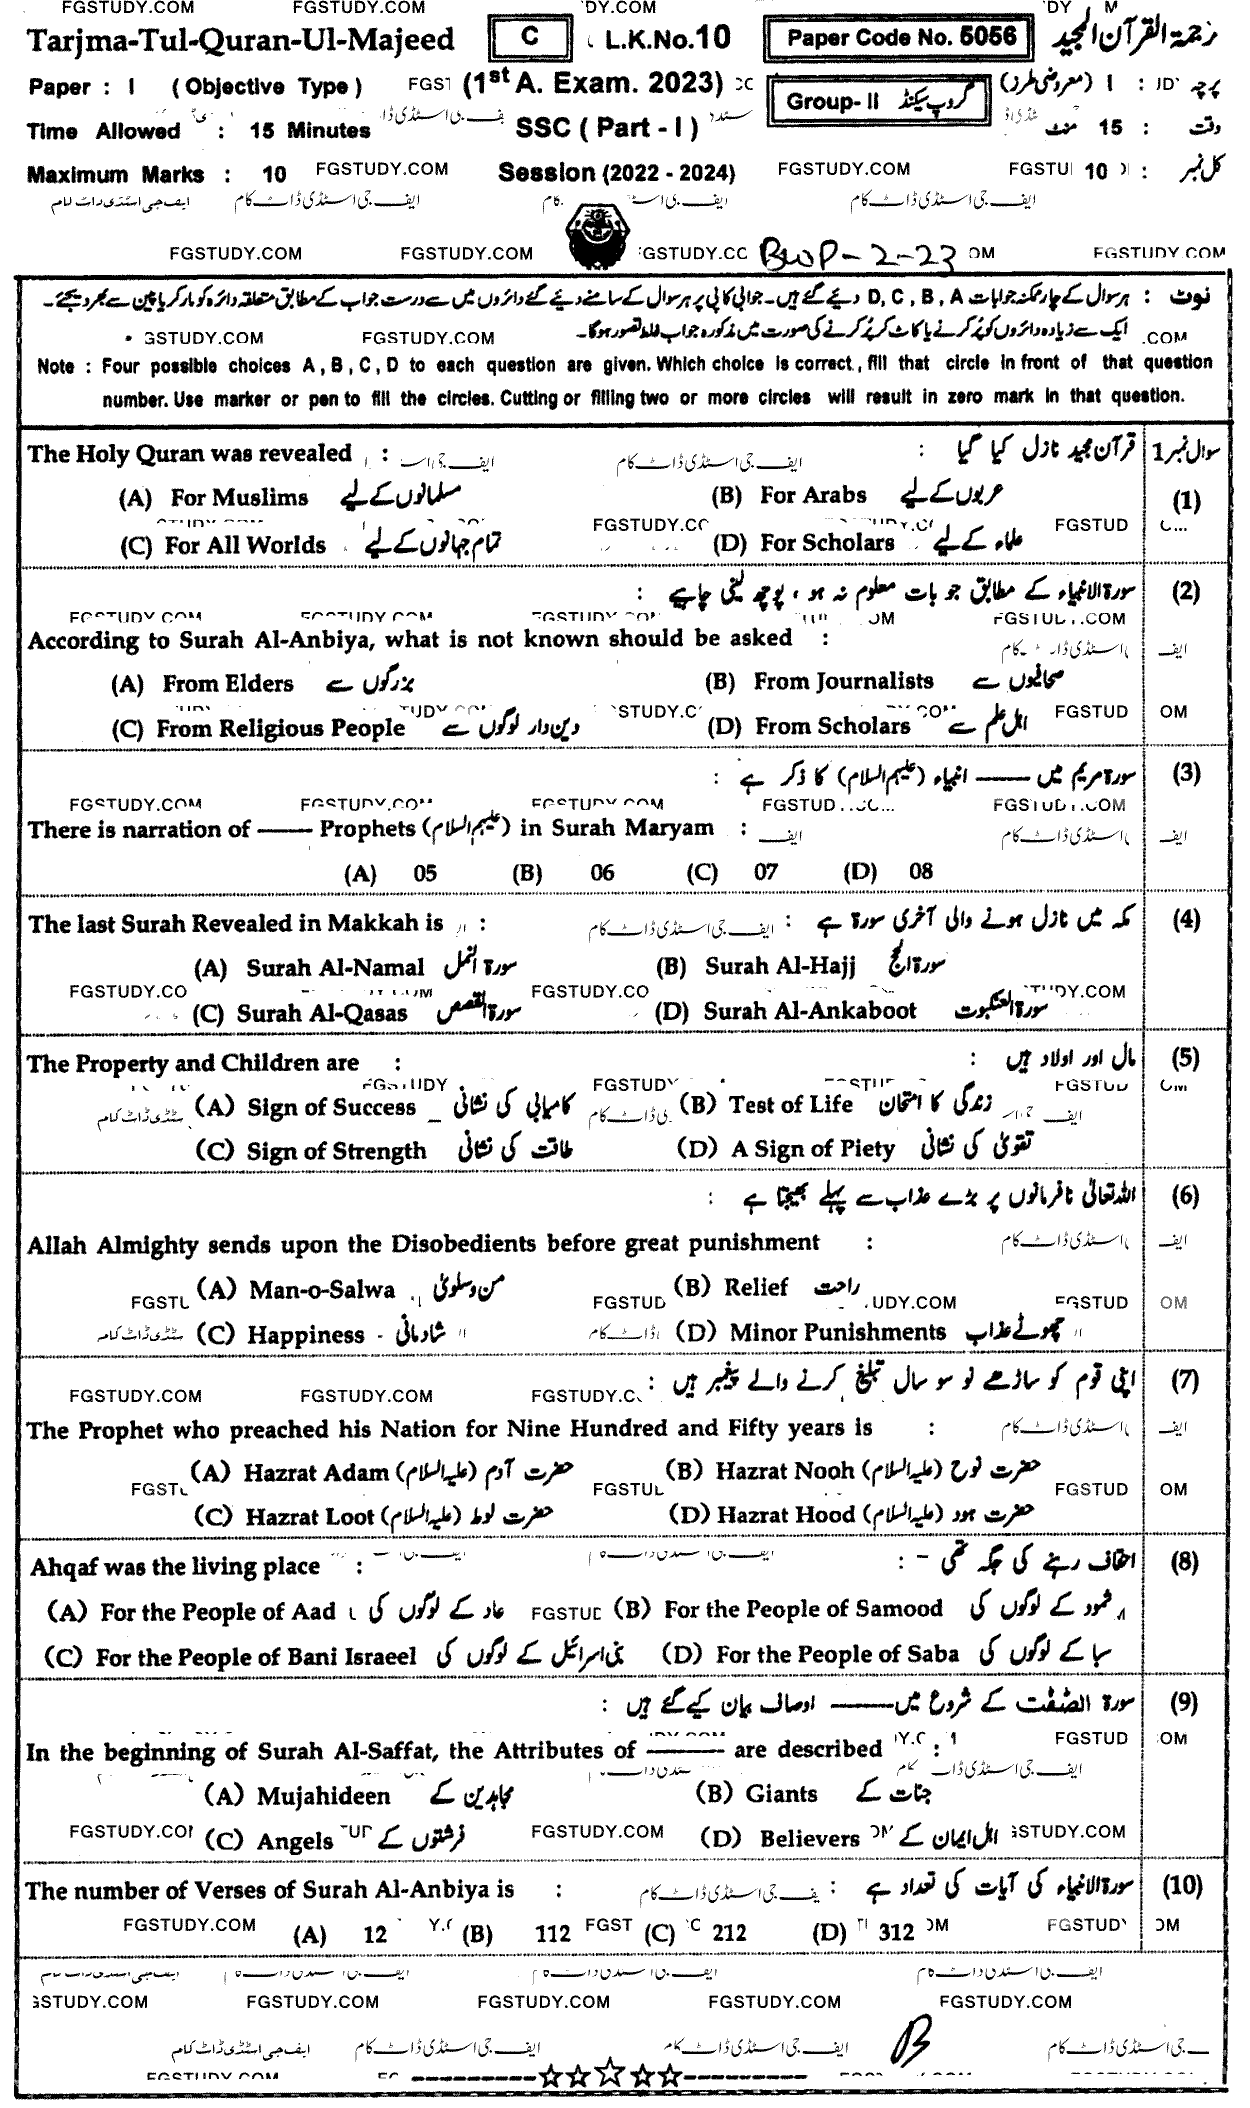 FGSTUDY.COM FGSTUDY.COM DY.COM DY M
Tarjma-Tul-Quran-Ul-Majeed C L.K.No.10 Paper Code No. 5056 ترجمۃ القرآن المجید
Paper : I ( Objective Type ) FGST (1st A. Exam. 2023) Group- II گروپ سیکنڈ پرچہ : I (معروضی طرز)
Time Allowed : 15 Minutes SSC ( Part - I ) وقت : 15 منٹ
Maximum Marks : 10 FGSTUDY.COM Session (2022 - 2024) FGSTUDY.COM FGSTU کل نمبر : 10
ایف جی اسٹڈی ڈاٹ کام ایف جی اسٹڈی ڈاٹ کام
FGSTUDY.COM FGSTUDY.COM GSTUDY.CC BWP-2-23 OM FGSTUDY.COM
نوٹ : ہر سوال کے چار ممکنہ جوابات D, C, B, A دیئے گئے ہیں۔ جوابی کاپی پر ہر سوال کے سامنے دیئے گئے دائروں میں سے درست جواب کے مطابق متعلقہ دائرہ کو مارکر یا پین سے بھر دیجئے۔
ایک سے زیادہ دائروں کو پُر کرنے یا کاٹ کر پُر کرنے کی صورت میں مذکورہ جواب غلط تصور ہوگا۔
GSTUDY.COM FGSTUDY.COM .COM
Note : Four possible choices A, B, C, D to each question are given. Which choice is correct, fill that circle in front of that question
number. Use marker or pen to fill the circles. Cutting or filling two or more circles will result in zero mark in that question.
The Holy Quran was revealed : قرآن مجید نازل کیا گیا : سوال نمبر 1
(A) For Muslims مسلمانوں کے لیے (B) For Arabs عربوں کے لیے (1)
(C) For All Worlds تمام جہانوں کے لیے (D) For Scholars علماء کے لیے
سورۃ الانبیاء کے مطابق جو بات معلوم نہ ہو ، پوچھ لینی چاہیے : (2)
According to Surah Al-Anbiya, what is not known should be asked :
(A) From Elders بزرگوں سے (B) From Journalists صحافیوں سے
(C) From Religious People دین دار لوگوں سے (D) From Scholars اہل علم سے
سورۃ مریم میں —— انبیاء (علیہم السلام) کا ذکر ہے : (3)
FGSTUDY.COM FGSTUDY.COM FGSTUDY.COM FGSTUD FGSTUDY.COM
There is narration of —— Prophets (علیہم السلام) in Surah Maryam :
(A) 05 (B) 06 (C) 07 (D) 08
The last Surah Revealed in Makkah is : مکہ میں نازل ہونے والی آخری سورۃ ہے : (4)
(A) Surah Al-Namal سورۃ النمل (B) Surah Al-Hajj سورۃ الحج
(C) Surah Al-Qasas سورۃ القصص (D) Surah Al-Ankaboot سورۃ العنکبوت
The Property and Children are : مال اور اولاد ہیں : (5)
(A) Sign of Success کامیابی کی نشانی (B) Test of Life زندگی کا امتحان
(C) Sign of Strength طاقت کی نشانی (D) A Sign of Piety تقویٰ کی نشانی
اللہ تعالیٰ نافرمانوں پر بڑے عذاب سے پہلے بھیجتا ہے : (6)
Allah Almighty sends upon the Disobedients before great punishment :
(A) Man-o-Salwa من و سلویٰ (B) Relief راحت
(C) Happiness شادمانی (D) Minor Punishments چھوٹے عذاب
اپنی قوم کو ساڑھے نو سو سال تبلیغ کرنے والے پیغمبر ہیں : (7)
FGSTUDY.COM FGSTUDY.COM FGSTUDY.C
The Prophet who preached his Nation for Nine Hundred and Fifty years is :
(A) Hazrat Adam (علیہ السلام) حضرت آدم (B) Hazrat Nooh (علیہ السلام) حضرت نوح
(C) Hazrat Loot (علیہ السلام) حضرت لوط (D) Hazrat Hood (علیہ السلام) حضرت ہود
Ahqaf was the living place : احقاف رہنے کی جگہ تھی - : (8)
(A) For the People of Aad عاد کے لوگوں کی (B) For the People of Samood ثمود کے لوگوں کی
(C) For the People of Bani Israeel بنی اسرائیل کے لوگوں کی (D) For the People of Saba سبا کے لوگوں کی
سورۃ الصّٰفّٰت کے شروع میں —— اوصاف بیان کیے گئے ہیں : (9)
In the beginning of Surah Al-Saffat, the Attributes of —— are described :
(A) Mujahideen مجاہدین کے (B) Giants جنات کے
(C) Angels فرشتوں کے (D) Believers اہل ایمان کے
The number of Verses of Surah Al-Anbiya is : سورۃ الانبیاء کی آیات کی تعداد ہے : (10)
(A) 12 (B) 112 (C) 212 (D) 312
GSTUDY.COM FGSTUDY.COM FGSTUDY.COM FGSTUDY.COM FGSTUDY.COM
ایف جی اسٹڈی ڈاٹ کام ایف جی اسٹڈی ڈاٹ کام ایف جی اسٹڈی ڈاٹ کام B
----------☆☆☆☆☆----------